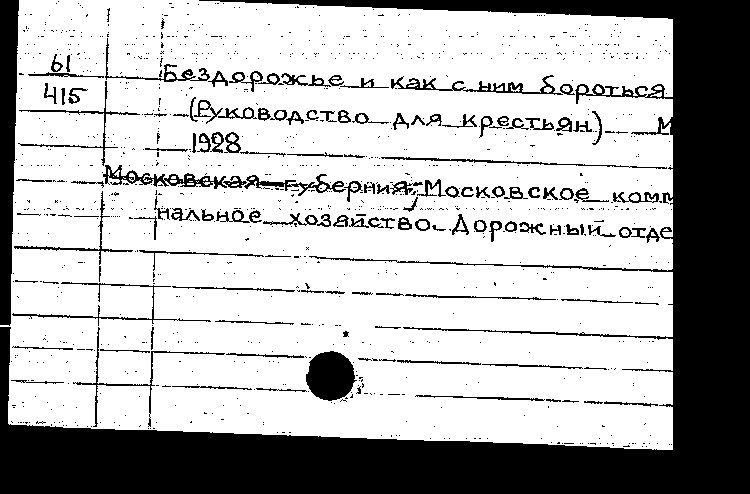 61
415
Бездорожье и как с ним бороться
(Руководство для крестьян) М
1928
Московская губерния; Московское комм
нальное хозяйство. Дорожный отде